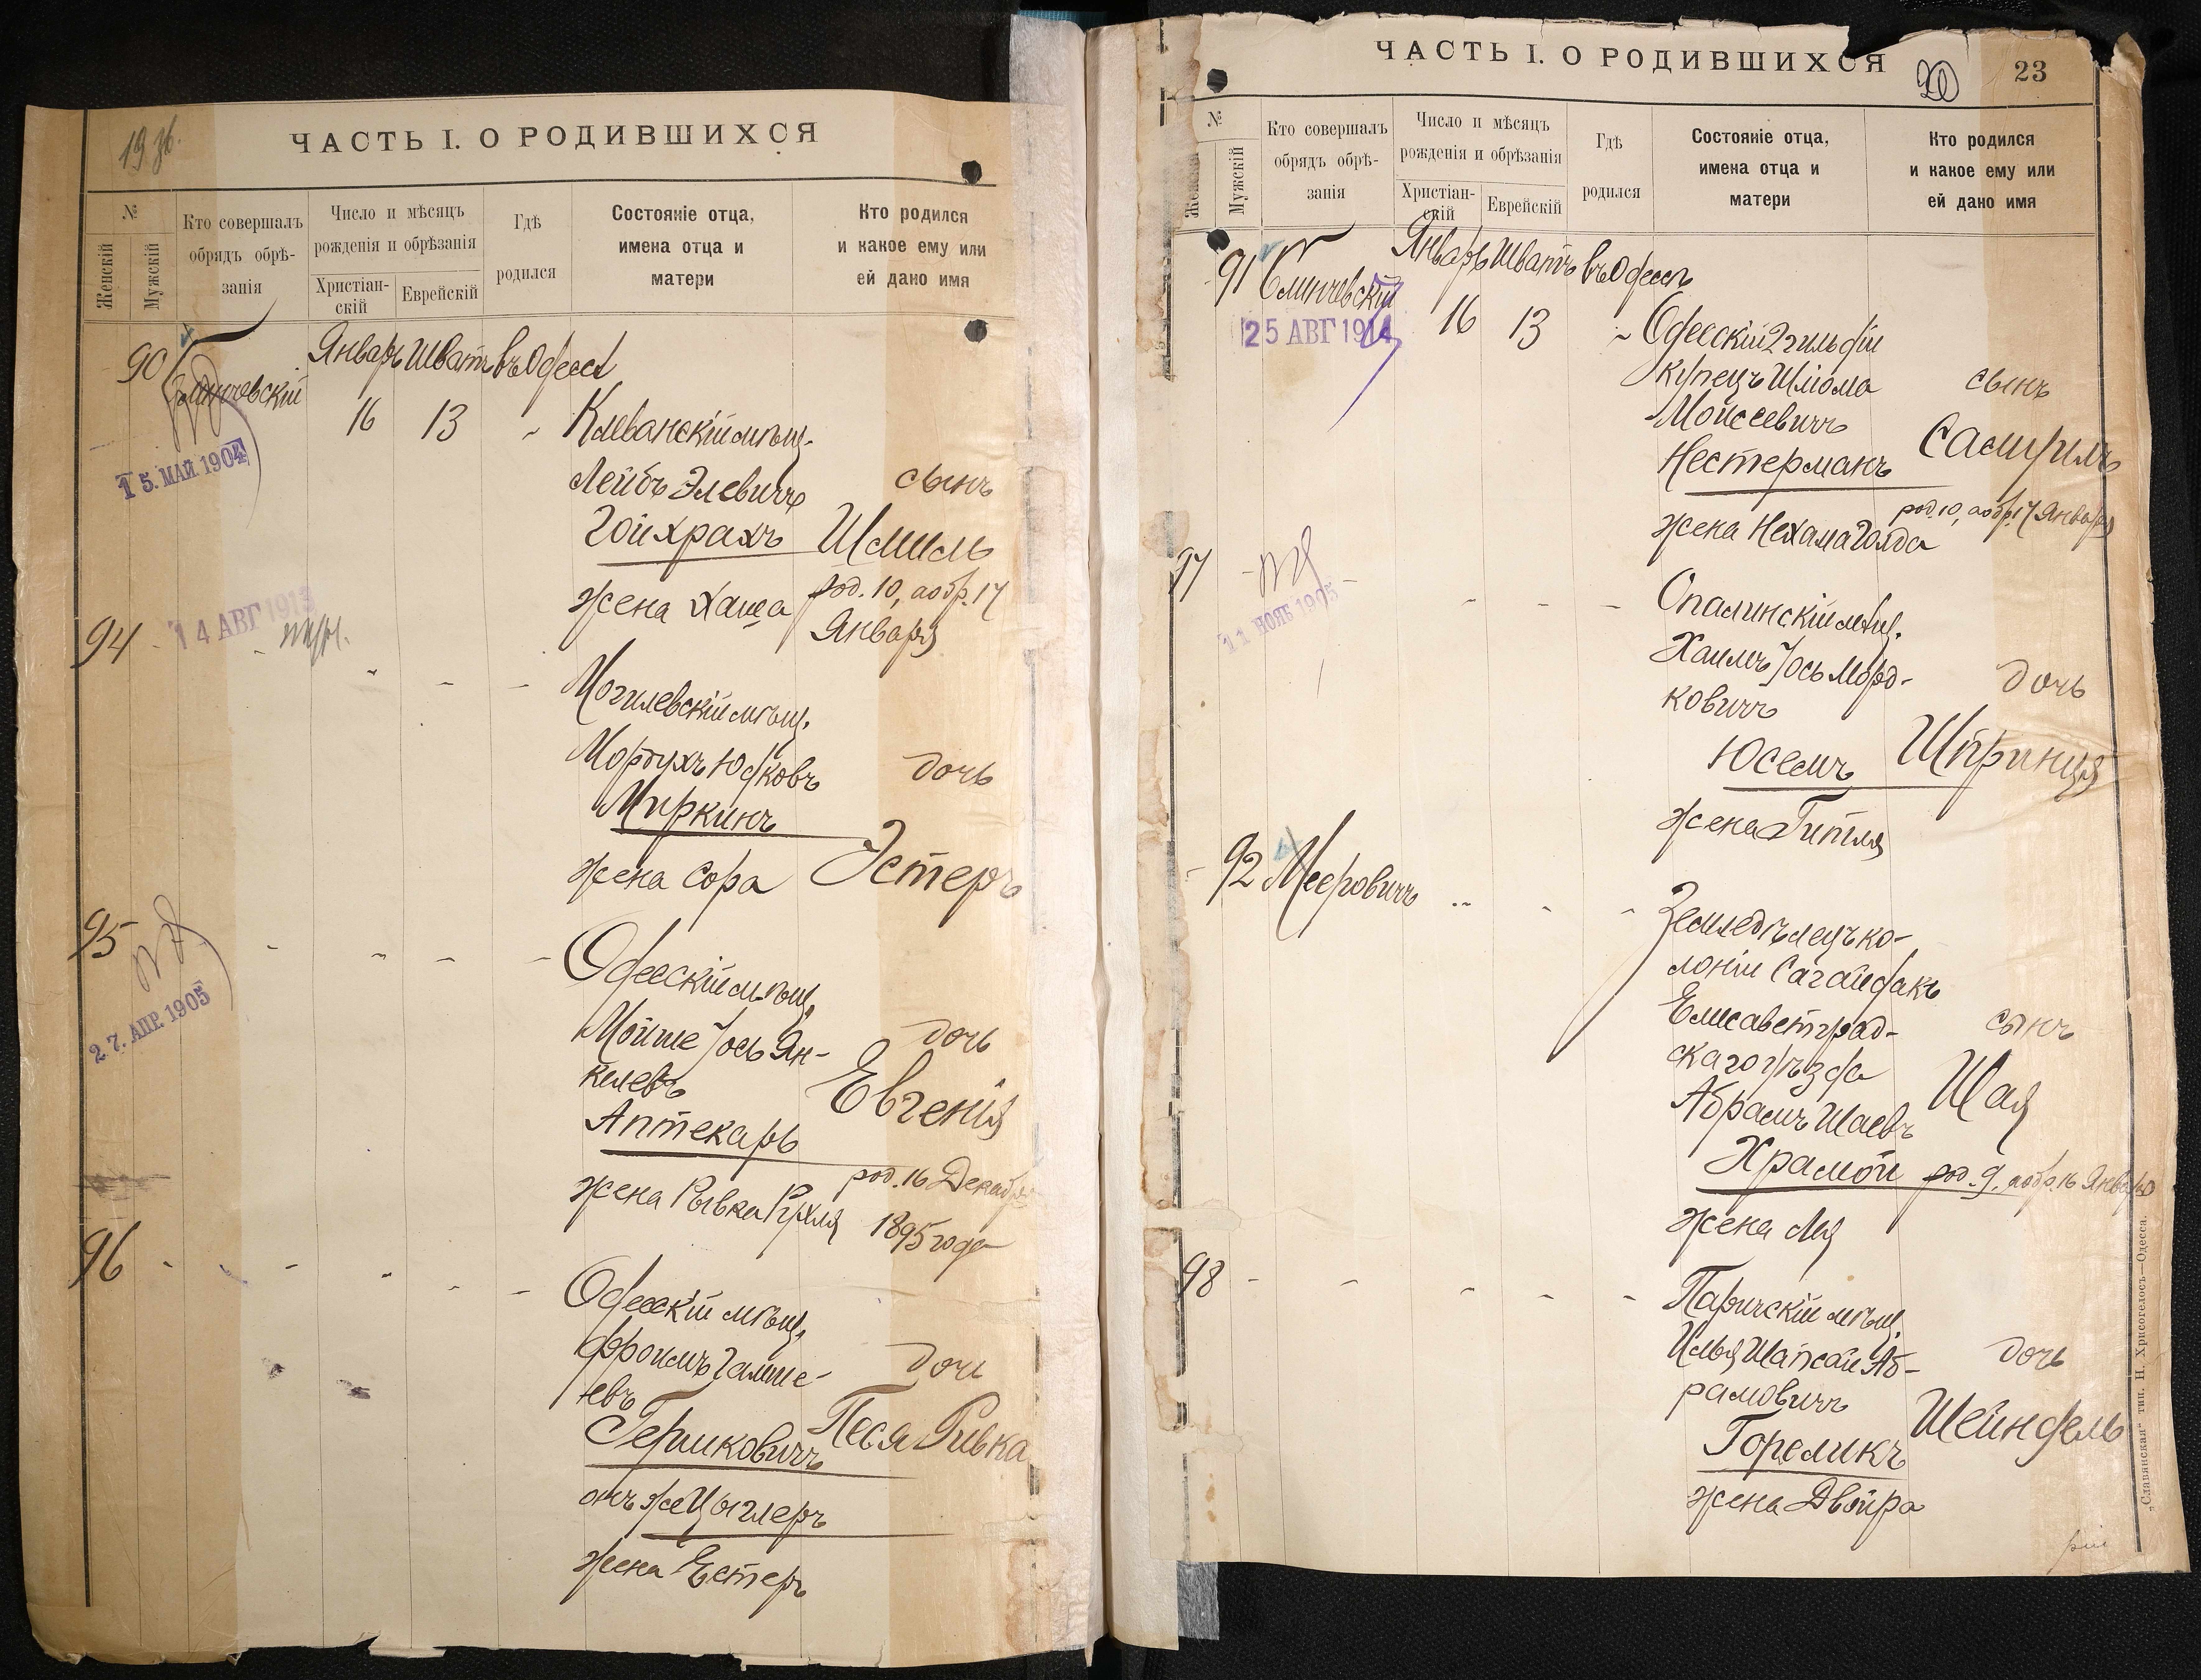 ЧАСТЬ I. О РОДИВШИХСЯ
№
Женскій
Мужскій
Кто совершалъ
обрядъ обрѣ-
занія
Число и мѣсяцъ
рожденія и обрѣзанія
Христіан-
скій
Еврейскій
Гдѣ
родился
Состояніе отца,
имена отца и
матери
Кто родился
и какое ему или
ей дано имя
90
Январь Шватъ въ Одессѣ
16 13 "
15. МАЙ. 1904
Клеванскій мѣщ.
Лейбъ Элевичъ
Гойхрахъ
жена Хаша
сынъ
Шмиль
род. 10, а обр. 17
Января
94
14 АВГ 1913
Могилевскій мѣщ.
Мордухъ Юдковъ
Миркинъ
жена Сора
дочь
Эстеръ
95
27. АПР. 1905
Одесскій мѣщ.
Мойше Іось Ян-
келевъ
Аптекарь
жена Рывка Рухля
дочь
Евгенія
род. 16 Декабря
1895 года
96
Одесскій мѣщ.
Фроимъ Гамше-
евъ
Гершковичъ
онъ же Цыглеръ
жена Естеръ
дочь
Песя Ривка
ЧАСТЬ I. О РОДИВШИХСЯ
20
23
№
Женскій
Мужскій
Кто совершалъ
обрядъ обрѣ-
занія
Число и мѣсяцъ
рожденія и обрѣзанія
Христіан-
скій
Еврейскій
Гдѣ
родился
Состояніе отца,
имена отца и
матери
Кто родился
и какое ему или
ей дано имя
91
Январь Шватъ въ Одессѣ
25 АВГ 1914
16 13 "
Одесскій 2 гильдіи
купецъ Шлiома
Моисеевичъ
Нестерманъ
жена Нехама Голда
сынъ
Самуилъ
род. 10, а обр. 17 Января
97
11 НОЯБ 1905
Опалинскій мѣщ.
Хаимъ Іось Морд-
ковичъ
Юсемъ
жена Гитля
дочь
Шпринця
92 Мееровичъ
Земледѣлецъ ко-
лоніи Сагайдакъ
Елисаветград-
скаго уѣзда
Абрамъ Шаевъ
Храмой
жена Лея
сынъ
Шая
род. 9, а обр. 16 Января
98
Паричскій мѣщ.
Илья Шапсай Аб-
рамовичъ
Гореликъ
жена Двойра
дочь
Шейндель
„Славянская“ тип. Н. Хрисогелосъ—Одесса.